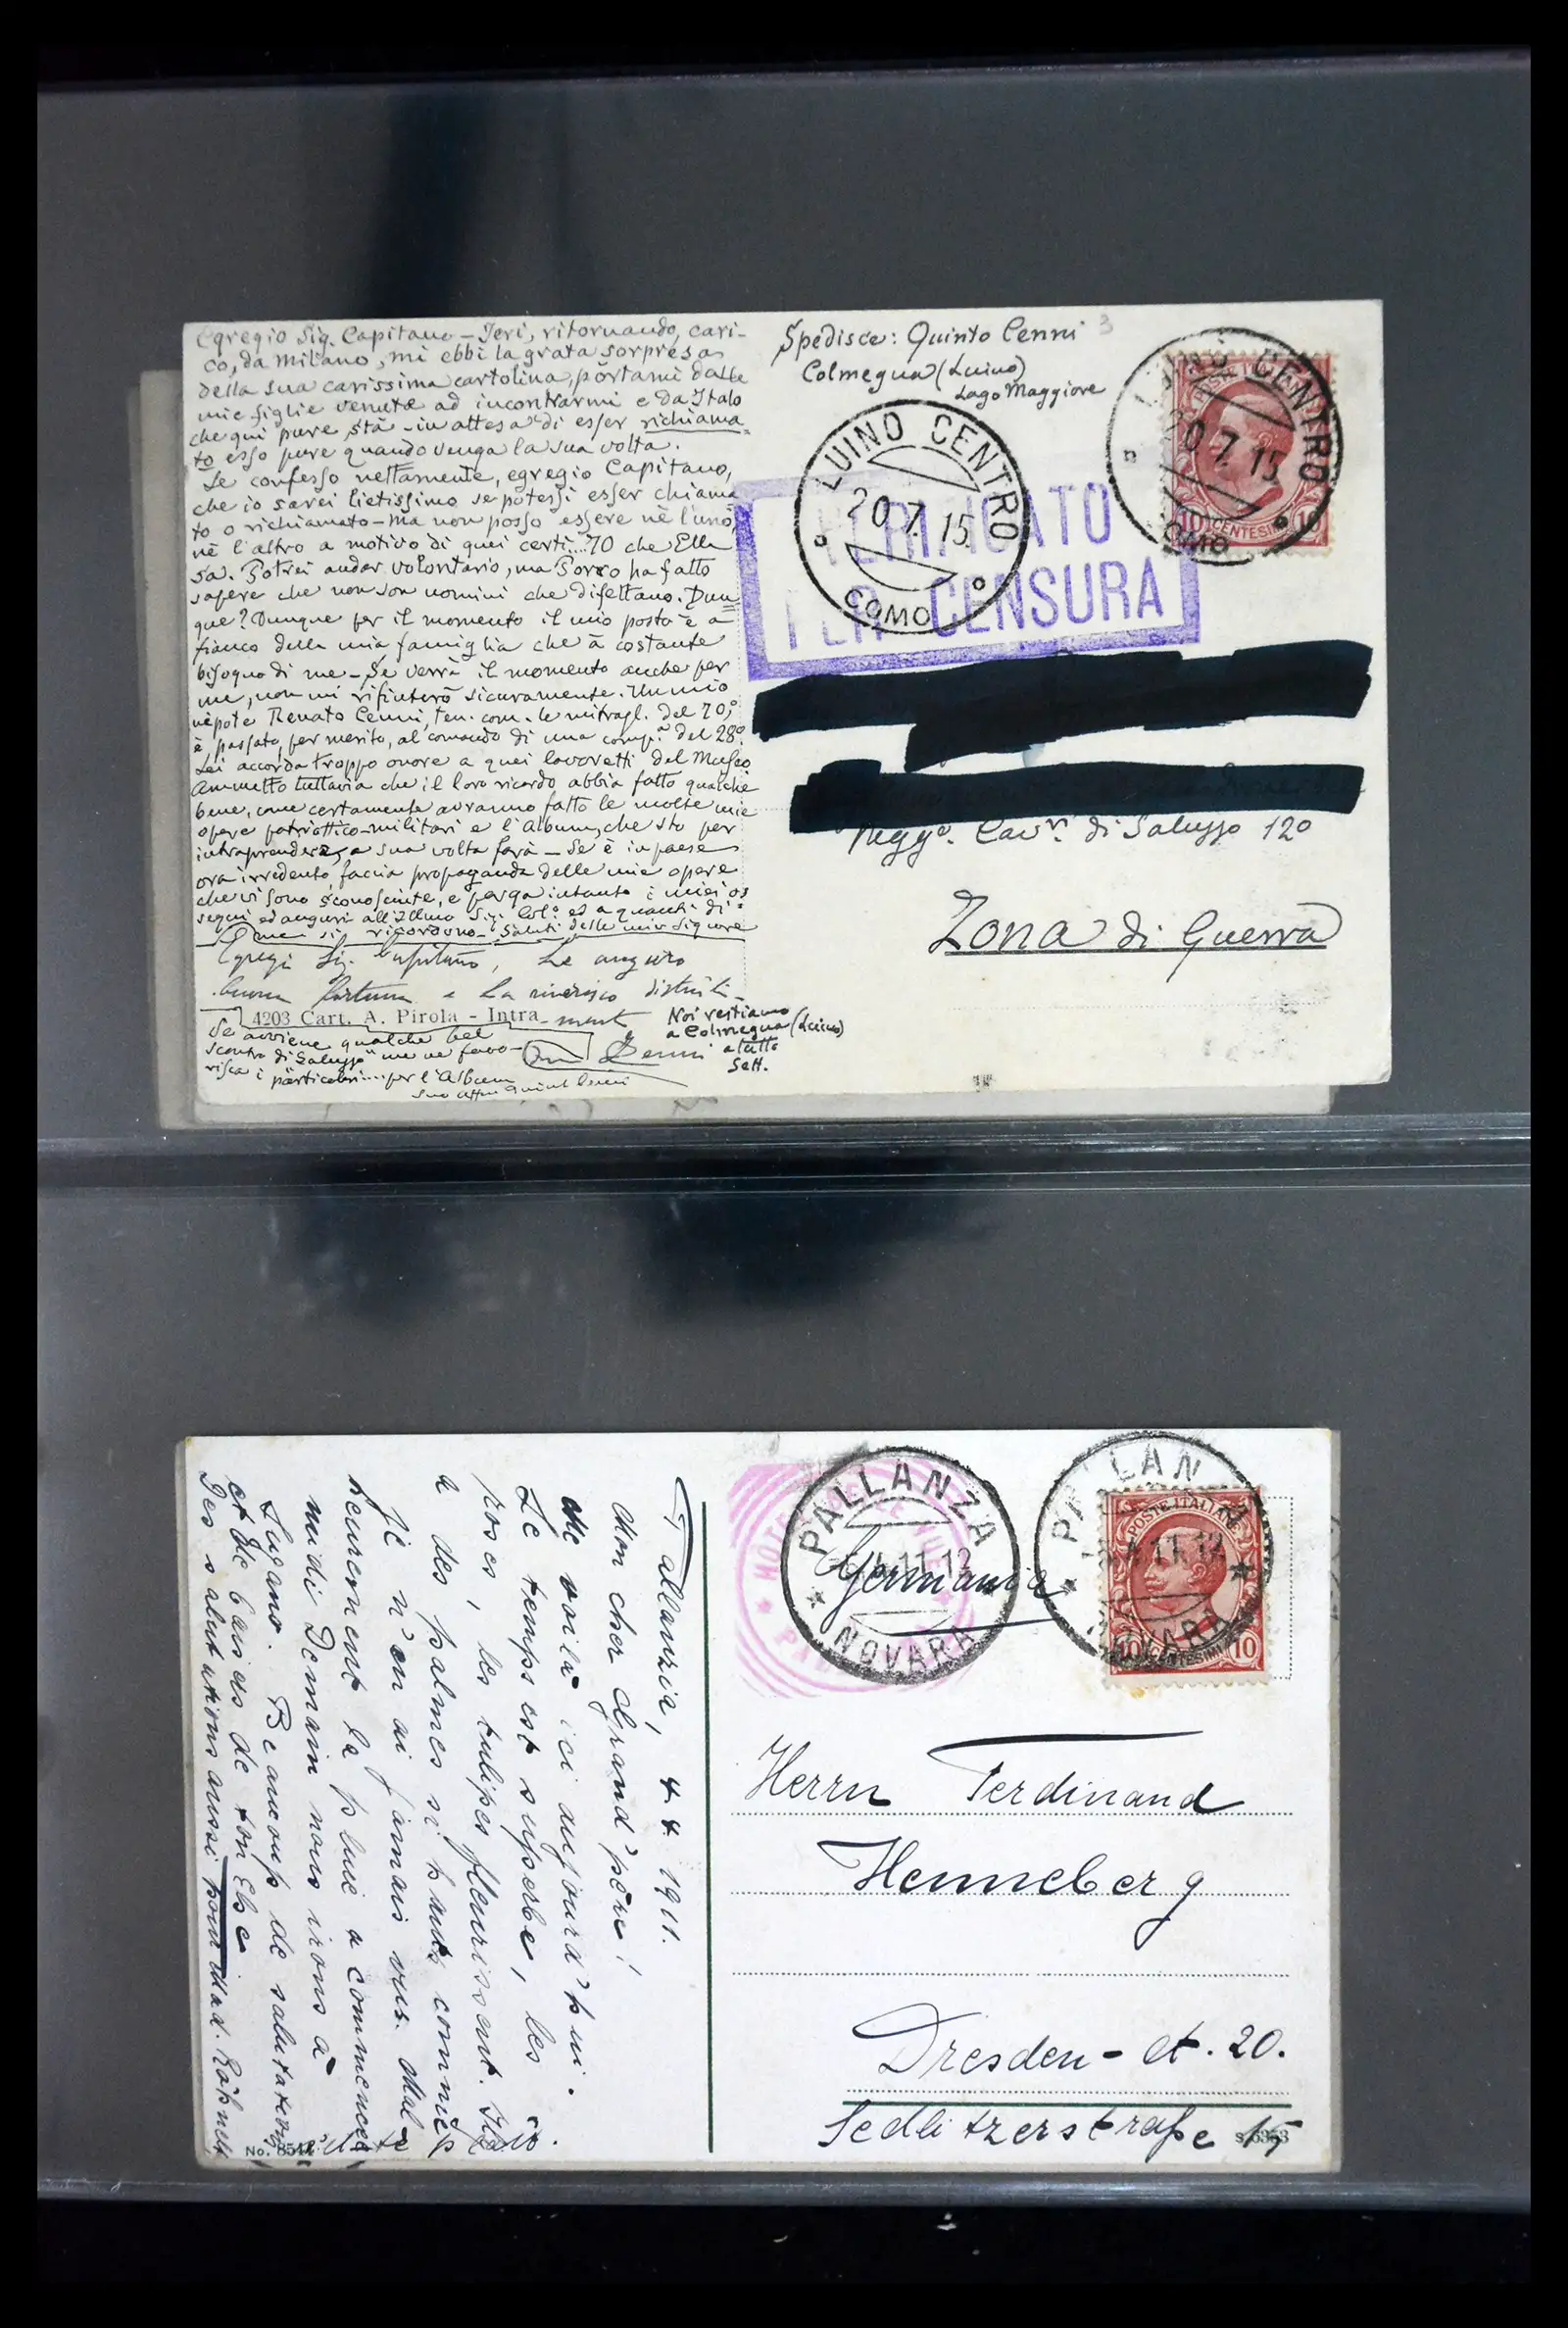 Egregio Sig. Capitano – Ieri, ritornando, cari-
co, da Milano, mi ebbi la grata sorpresa
della sua carissima cartolina, portami dalle
mie figlie venute ad incontrarmi e da Italo
che qui pure stà – in attesa di esser richiama-
to esso pure quando venga la sua volta.
Le confesso nettamente, egregio Capitano,
che io sarei lietissimo se potessi esser chiama
to o richiamato – ma non posso essere nè l'uno,
nè l'altro a motivo di quei certi....70 che Ella
sa. Potrei andar volontario, ma Porro ha fatto
sapere che non son uomini che difettano. Dun
que? Dunque per il momento il mio posto è a
fianco della mia famiglia che à costante
bisogno di me – Se verrà il momento anche per
me, non mi rifiuterò sicuramente. Un mio
nipote Renato Cenni, ten. com. le mitragl. del 70°,
è passato, per merito, al comando di una comp.ª del 28°.
Lei accorda troppo onore a quei lavoretti del Museo
Ammetto tuttavia che il loro ricordo abbia fatto qualche
bene, come certamente avranno fatto le molte mie
opere patriottico-militari e l'Album, che sto per
intraprendere, a sua volta farà – Se è in paese
ora irredento, faccia propaganda delle mie opere
che vi sono sconosciute, e porga intanto i miei os
sequi ed auguri all'Illmo Sig. Col.º ed a quanti di
me si ricordano – Saluti delle mie Signore
Egregi Sig. Capitano, Le auguro
buona fortuna e La riverisco distinta-
mente
4203 Cart. A. Pirola - Intra
Se avviene qualche bel
scontro di "Saluzzo" me ne favo-
risca i particolari....per l'Album
Suo affmo Quinto Cenni
Cenni
Noi restiamo
a Colmegna (Luino)
a tutto
Sett.
Spedisce: Quinto Cenni 3
Colmegna (Luino)
Lago Maggiore
LUINO CENTRO
20.7.15
COMO
VERIFICATO
PER CENSURA
LUINO CENTRO
20.7.15
COMO
POSTE ITALIANE
10 CENTESIMI 10
Regg.º Cav.ri di Saluzzo 12º
Zona di Guerra
Pallanza, 4 4 1911.
Mon cher Grand'père!
Me voilà ici aujourd'hui.
Le temps est superbe, les
roses, les tulipes fleurissent. Il y
a des palmes si hauts comme
je n'en ai jamais vus. Mal-
heureusement la pluie a commencé
midi Demain nous irons à
Lugano. Beaucoup de salutations
et de baisers de ton Else
Des salutations aussi pour Mad.
No. 8544
HOTEL
PALLANZA
11.12
NOVARA
Germania
PALLANZA
11.12
NOVARA
POSTE ITALIANE
10 CENTESIMI 10
Herrn Ferdinand
Henneberg
Dresden - A. 20.
Sedlitzerstraße 15
S 6353